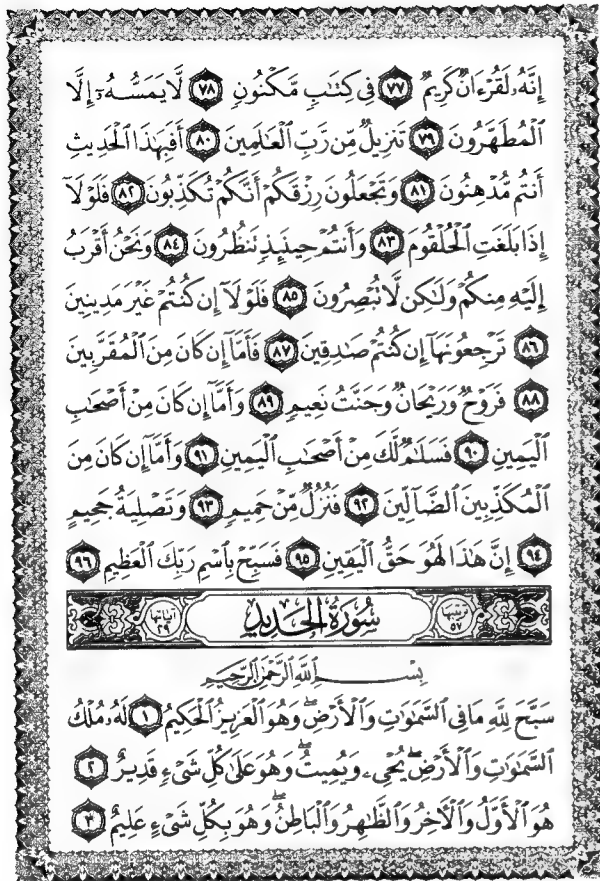 إِنَّهُۥ لَقُرْءَانٌ كَرِيمٌ ٧٧ فِي كِتَٰبٍ مَّكْنُونٍ ٧٨ لَّا يَمَسُّهُۥٓ إِلَّا
الْمُطَهَّرُونَ ٧٩ تَنزِيلٌ مِّن رَّبِّ الْعَٰلَمِينَ ٨٠ أَفَبِهَٰذَا الْحَدِيثِ
أَنتُم مُّدْهِنُونَ ٨١ وَتَجْعَلُونَ رِزْقَكُمْ أَنَّكُمْ تُكَذِّبُونَ ٨٢ فَلَوْلَآ
إِذَا بَلَغَتِ الْحُلْقُومَ ٨٣ وَأَنتُمْ حِينَئِذٍ تَنظُرُونَ ٨٤ وَنَحْنُ أَقْرَبُ
إِلَيْهِ مِنكُمْ وَلَٰكِن لَّا تُبْصِرُونَ ٨٥ فَلَوْلَآ إِن كُنتُمْ غَيْرَ مَدِينِينَ
٨٦ تَرْجِعُونَهَآ إِن كُنتُمْ صَٰدِقِينَ ٨٧ فَأَمَّآ إِن كَانَ مِنَ الْمُقَرَّبِينَ
٨٨ فَرَوْحٌ وَرَيْحَانٌ وَجَنَّتُ نَعِيمٍ ٨٩ وَأَمَّآ إِن كَانَ مِنْ أَصْحَٰبِ
الْيَمِينِ ٩٠ فَسَلَٰمٌ لَّكَ مِنْ أَصْحَٰبِ الْيَمِينِ ٩١ وَأَمَّآ إِن كَانَ مِنَ
الْمُكَذِّبِينَ الضَّآلِّينَ ٩٢ فَنُزُلٌ مِّنْ حَمِيمٍ ٩٣ وَتَصْلِيَةُ جَحِيمٍ
٩٤ إِنَّ هَٰذَا لَهُوَ حَقُّ الْيَقِينِ ٩٥ فَسَبِّحْ بِاسْمِ رَبِّكَ الْعَظِيمِ ٩٦
ترتيبها ٥٧ سُورَةُ الْحَدِيدِ آياتها ٢٩
بِسْمِ اللَّهِ الرَّحْمَٰنِ الرَّحِيمِ
سَبَّحَ لِلَّهِ مَا فِي السَّمَٰوَٰتِ وَالْأَرْضِ ۖ وَهُوَ الْعَزِيزُ الْحَكِيمُ ١ لَهُۥ مُلْكُ
السَّمَٰوَٰتِ وَالْأَرْضِ ۖ يُحْيِۦ وَيُمِيتُ ۖ وَهُوَ عَلَىٰ كُلِّ شَيْءٍ قَدِيرٌ ٢
هُوَ الْأَوَّلُ وَالْآخِرُ وَالظَّٰهِرُ وَالْبَاطِنُ ۖ وَهُوَ بِكُلِّ شَيْءٍ عَلِيمٌ ٣